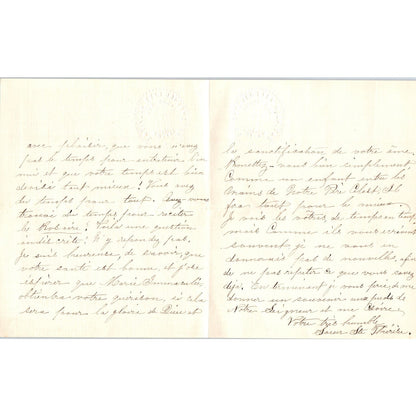 avec plaisir, que vous n'avez
pas le temps pour entretenir l'en-
nui et que votre temps est bien
divisé tant mieux! Vous avez
les temps pour tout. Auriez-vous
du temps pour réciter
le Rosaire? Voilà une question
indiscrète! N'y répondez pas.
Je suis heureuse, de savoir que
votre santé est bonne et j'ose
espérer que Marie Immaculée
obtiendra votre guérison, si cela
sera pour la gloire de Dieu et
la sanctification de votre âme.
vous bien simplement
Comme un enfant entre les
mains de Notre Père Célest. Il
fera tout, pour le mieux.
Je vois les vôtres, de temps en temps
mais Comme ils vous écrivent
souvent, je ne vous en
donnerais pas de nouvelle, afin
de ne pas répéter ce que vous savez
déjà. En terminant je vous prie, de me
donner un souvenir aux pieds de
Notre Seigneur et me Croire,
Votre très humble
Soeur Ste Thérèse.